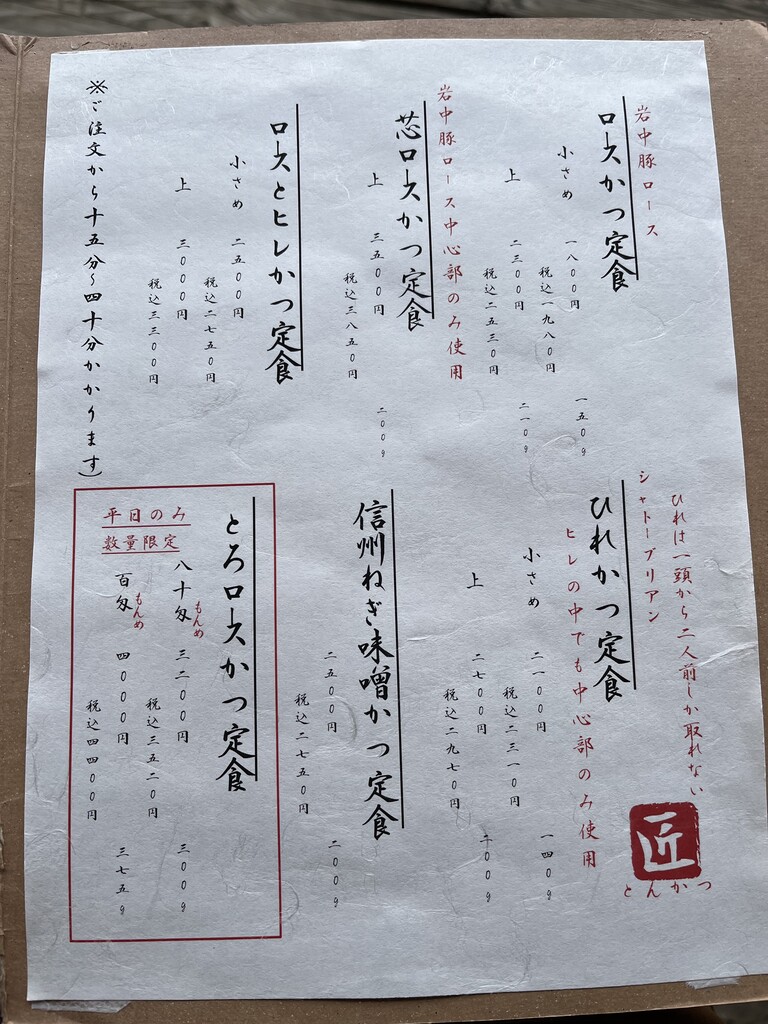 岩中豚ロース
ロースかつ定食
小さめ 一八〇〇円
税込一九八〇円
一五〇g
上 二三〇〇円
税込二五三〇円
二一〇g
岩中豚ロース中心部のみ使用
芯ロースかつ定食
上 三五〇〇円
税込三八五〇円
二〇〇g
ロースとヒレかつ定食
小さめ 二五〇〇円
税込二七五〇円
上 三〇〇〇円
税込三三〇〇円
※ご注文から十五分~四十分かかります)
ひれは一頭から二人前しか取れない
シャトーブリアン
ひれかつ定食
ヒレの中でも中心部のみ使用
小さめ 二一〇〇円
税込二三一〇円
一四〇g
上 二七〇〇円
税込二九七〇円
二〇〇g
信州ねぎ味噌かつ定食
二五〇〇円
税込二七五〇円
二〇〇g
とろロースかつ定食
平日のみ
数量限定
八十匁 三二〇〇円
もんめ
税込三五二〇円
三〇〇g
百匁 四〇〇〇円
もんめ
税込四四〇〇円
三七五g
匠
とんかつ